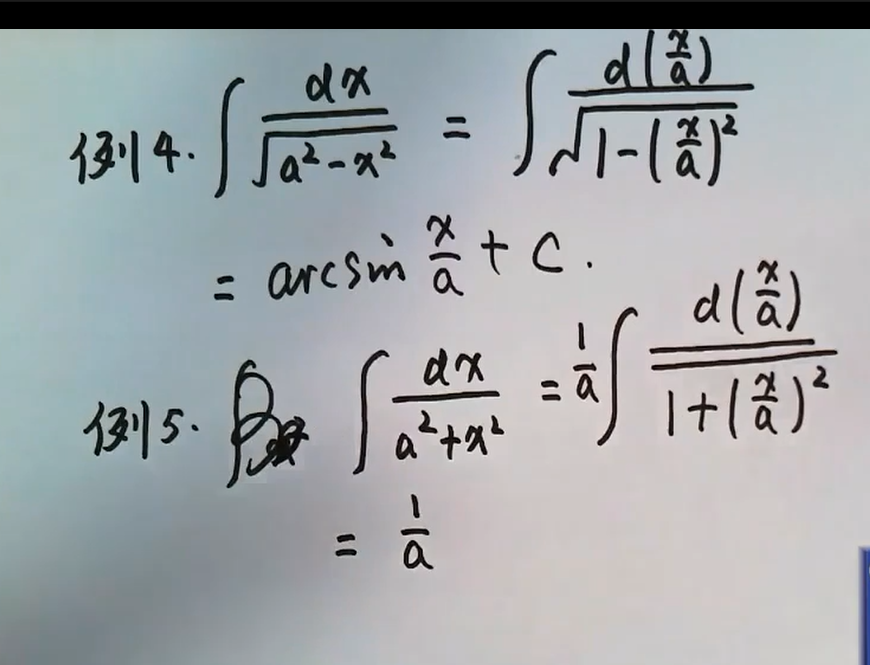 例4. ∫ dx/√(a²-x²) = ∫ d(x/a)/√(1-(x/a)²)
= arcsin x/a + C.
例5. ∫ dx/(a²+x²) = 1/a ∫ d(x/a)/(1+(x/a)²)
= 1/a